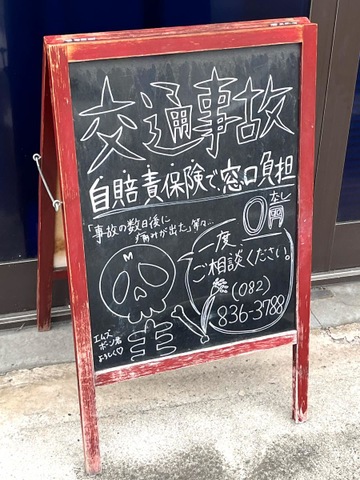 交通事故
自賠責保険で、窓口負担
0円なし
「事故の数日後に
痛みが出た」等々…
一度、
ご相談ください。
☎(082)
836-3788
M
エムズ
ボーン君
よろしく♡